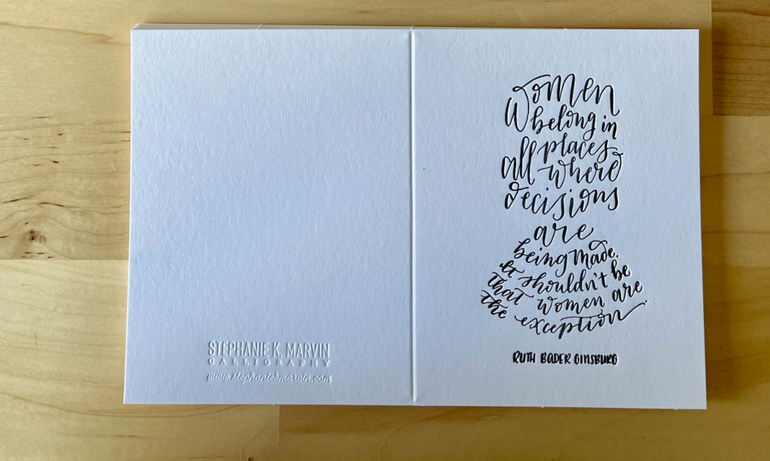 STEPHANIE K. MARVIN
CALLIGRAPHY
www.stephaniekmarvin.com
Women
belong in
all places
where
decisions
are
being made.
It shouldn't be
that women are
the exception.
RUTH BADER GINSBURG